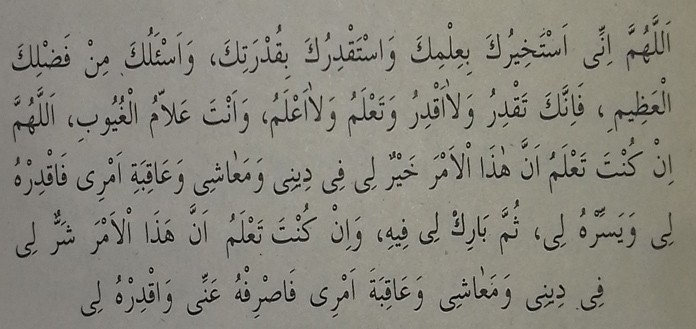 اَللَّهُمَّ اِنِّى اَسْتَخِيرُكَ بِعِلْمِكَ وَاسْتَقْدِرُكَ بِقُدْرَتِكَ، وَاَسْئَلُكَ مِنْ فَضْلِكَ
الْعَظِيمِ، فَاِنَّكَ تَقْدِرُ وَلاٰاَقْدِرُ وَتَعْلَمُ وَلاٰاَعْلَمُ، وَاَنْتَ عَلاَّمُ الْغُيُوبِ، اَللَّهُمَّ
اِنْ كُنْتَ تَعْلَمُ اَنَّ هٰذَا الْاَمْرَ خَيْرٌ لِى فِى دِينِى وَمَعٰاشِى وَعَاقِبَةِ اَمْرِى فَاقْدِرْهُ
لِى وَيَسِّرْهُ لِى، ثُمَّ بَارِكْ لِى فِيهِ، وَاِنْ كُنْتَ تَعْلَمُ اَنَّ هَذَا الْاَمْرَ شَرٌّ لِى
فِى دِينِى وَمَعٰاشِى وَعَاقِبَةَ اَمْرِى فَاصْرِفْهُ عَنِّى وَاقْدِرْهُ لِى